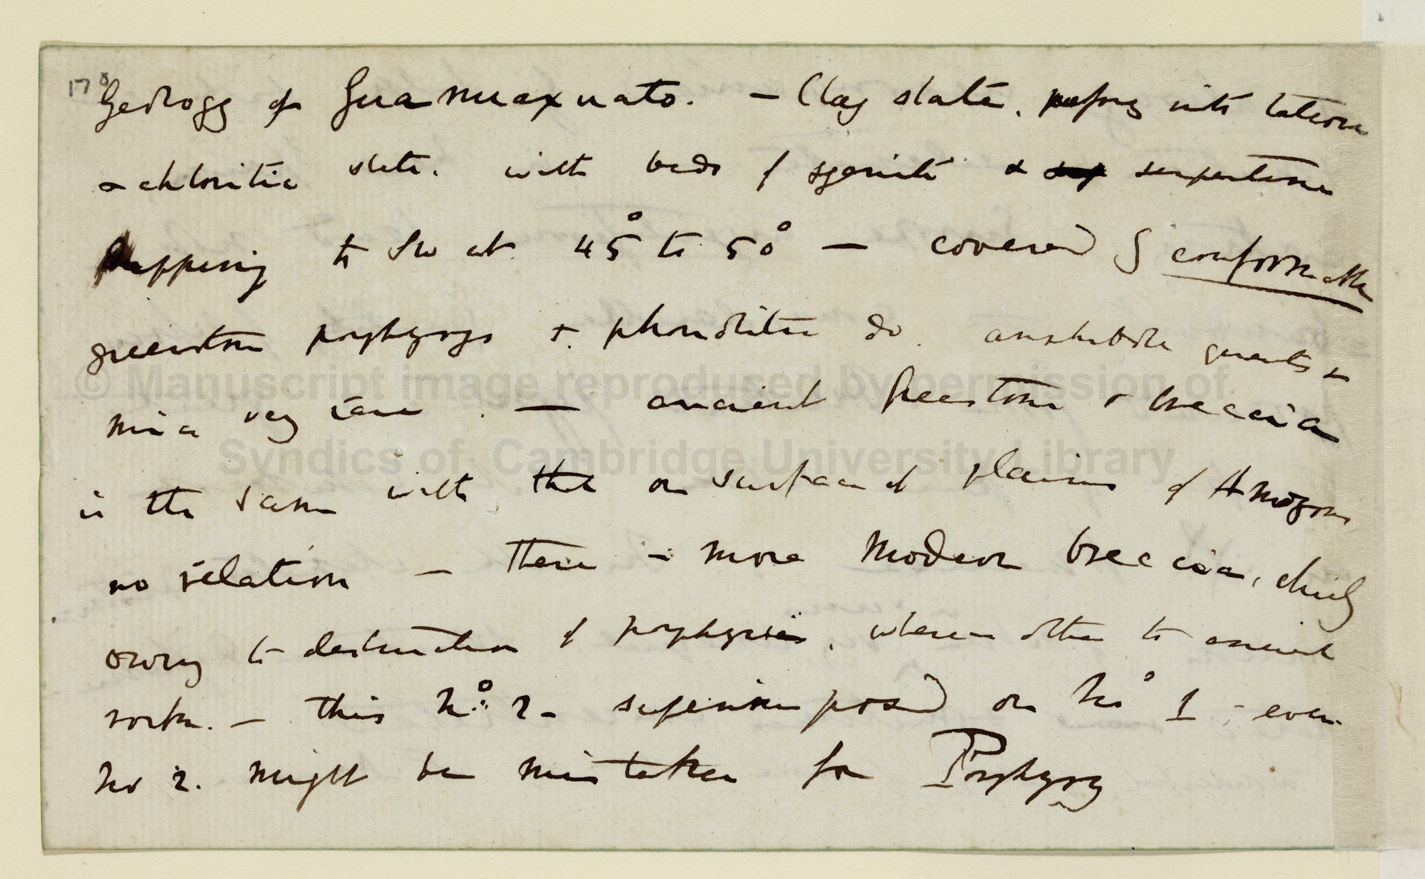 178
Geology of Guanaxuato. — Clay slate. passing into talcose
& chloritic slate. with beds of syenite & serpentine
dipping to SW at 45° to 50° — covered by conformable
greenstone porphyrys & phonolitic do. amphibole quartz &
mica very rare. — ancient freestone & breccia
is the same with that on surface of plains of Amazons
no relation — there is more modern breccia, chiefly
owing to destruction of porphyries, whereas other to ancient
rocks. — this No. 2. superimposed on No 1 - even
No 2. might be mistaken for Porphyry
© Manuscript image reproduced by permission of
Syndics of Cambridge University Library